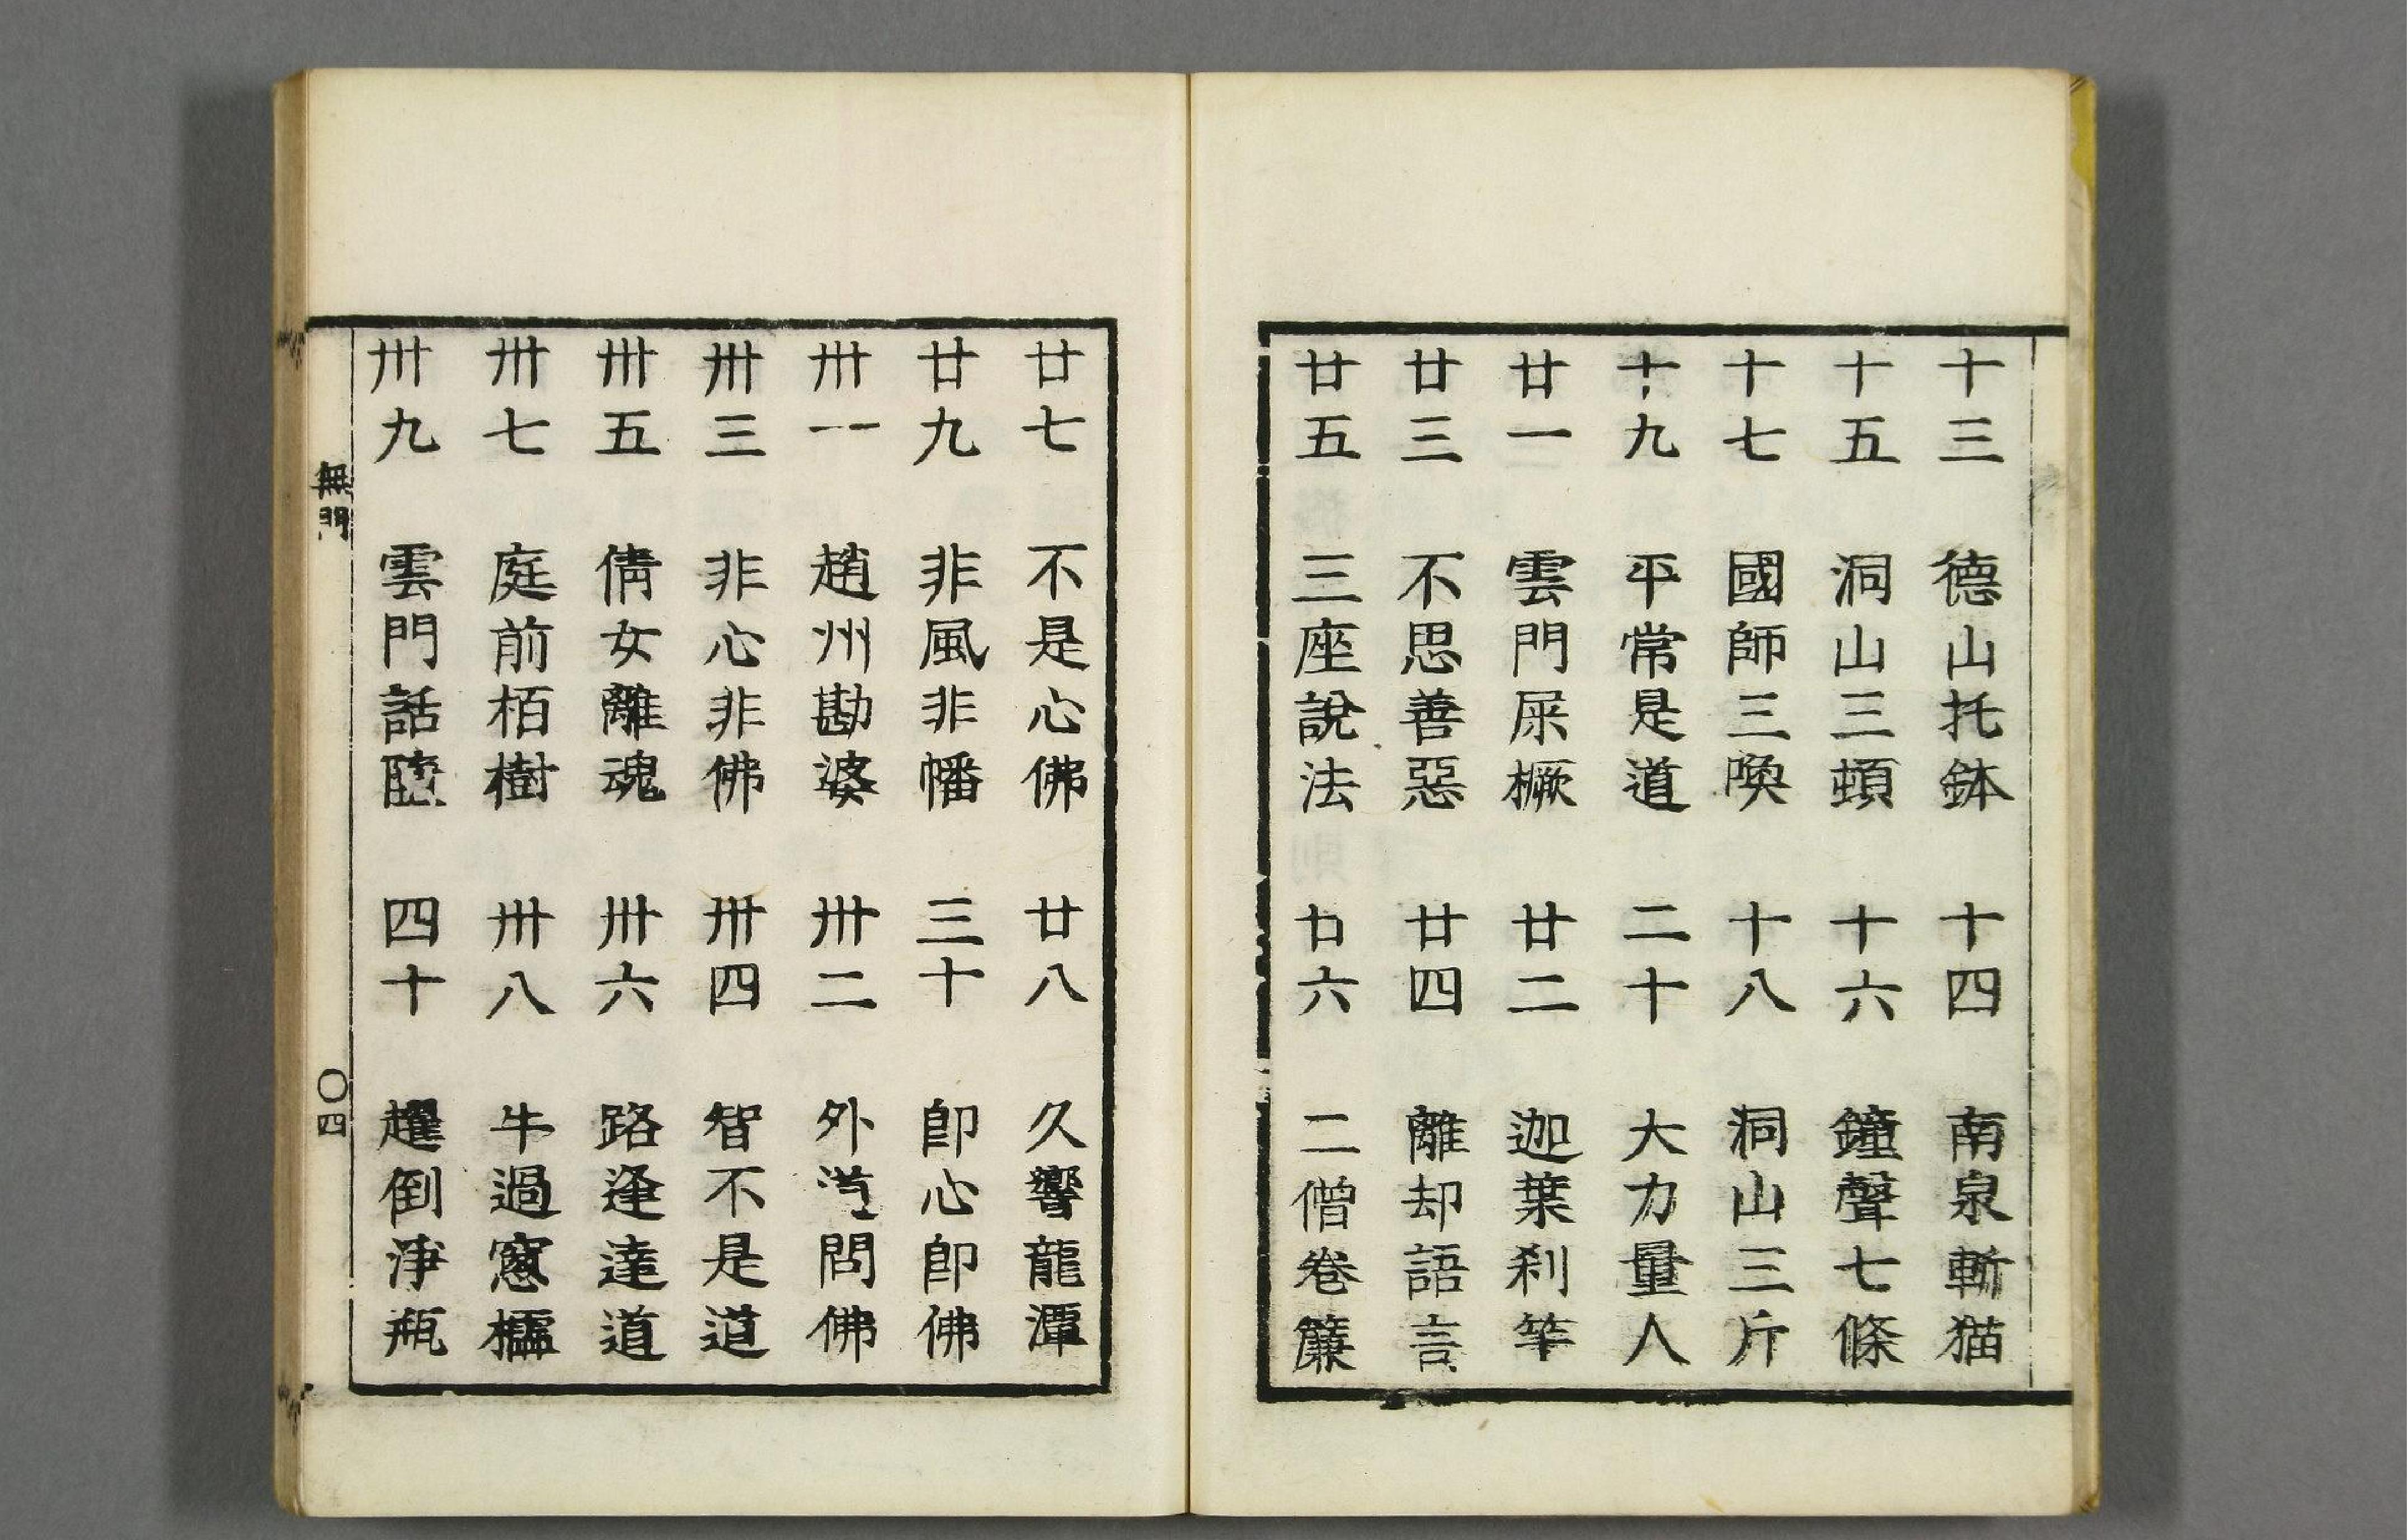 十三 德山托鉢 十四 南泉斬猫
十五 洞山三頓 十六 鐘聲七條
十七 國師三喚 十八 洞山三斤
十九 平常是道 二十 大力量人
廿一 雲門屎橛 廿二 迦葉刹竿
廿三 不思善惡 廿四 離却語言
廿五 三座說法 廿六 二僧卷簾
廿七 不是心佛 廿八 久響龍潭
廿九 非風非幡 三十 卽心卽佛
卅一 趙州勘婆 卅二 外道問佛
卅三 非心非佛 卅四 智不是道
卅五 倩女離魂 卅六 路逢達道
卅七 庭前栢樹 卅八 牛過窓櫺
卅九 雲門話墮 四十 趯倒淨瓶
無門 〇四